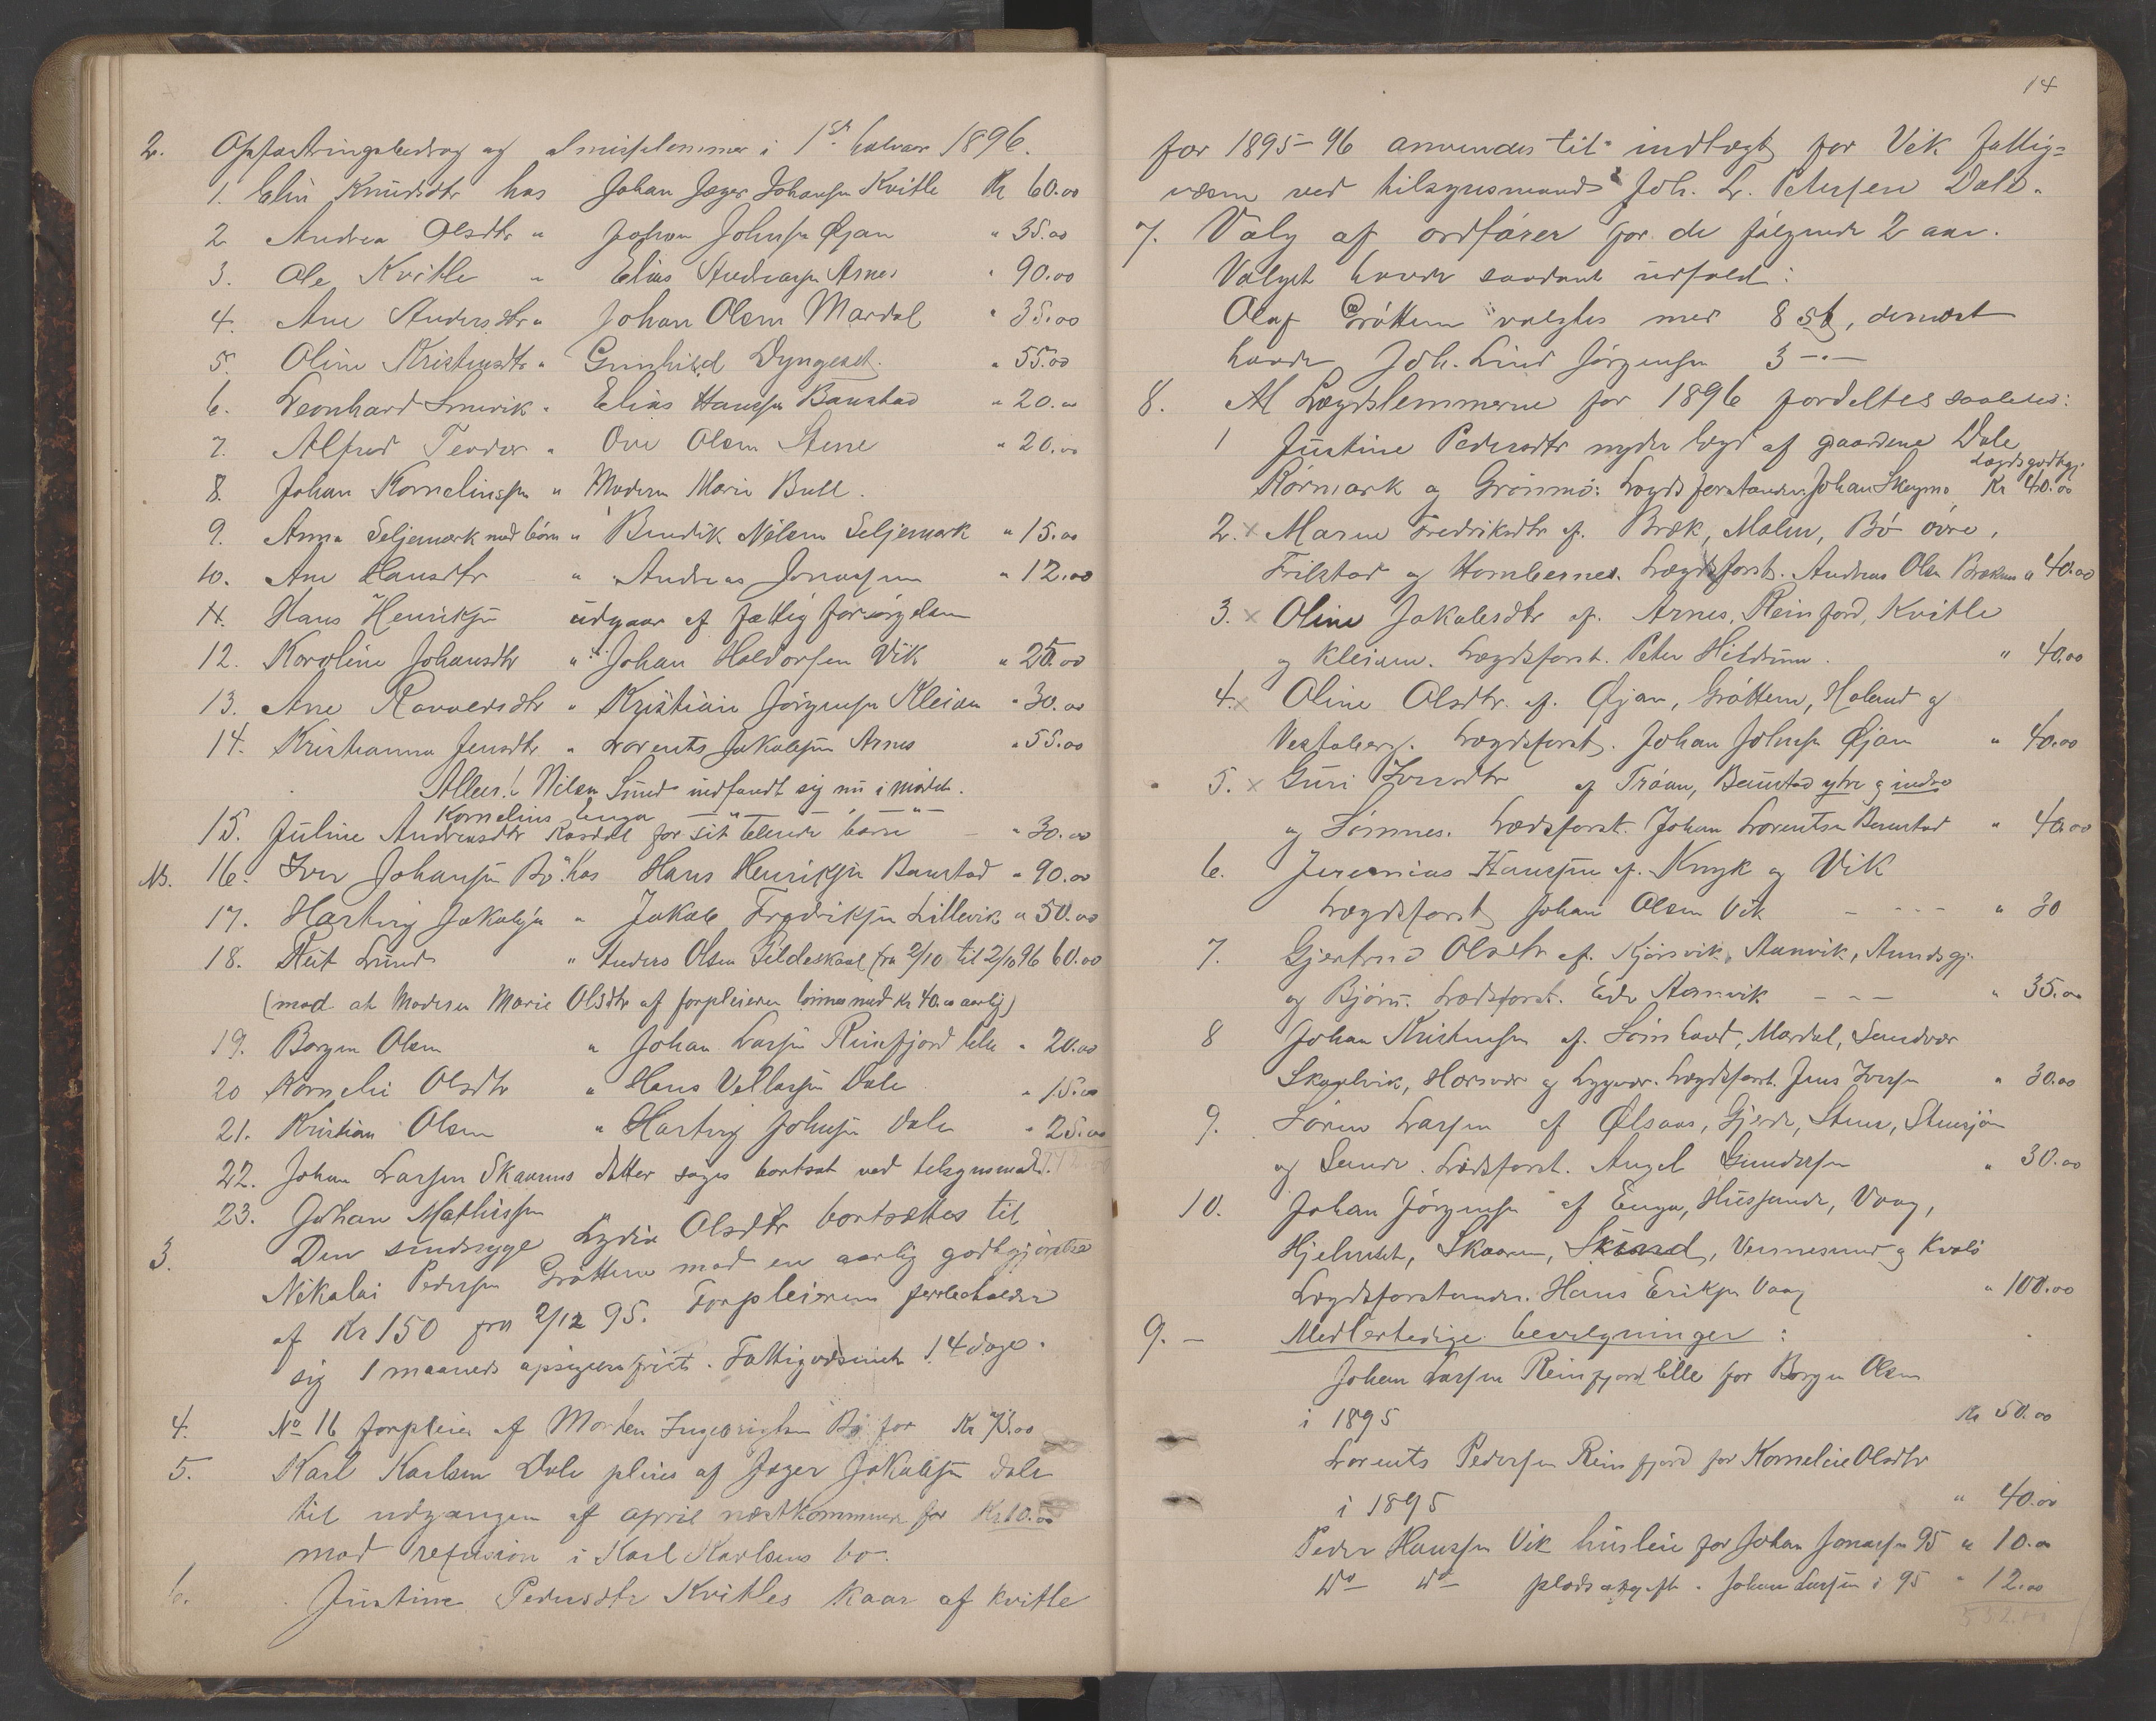 2. Opfostringsbedrag og almisselemmer i 1ste halvaar 1896.
1. Elin Knudsdtr hos Johan Jæger Johansen Kvitle Kr 60.00
2 Andrea Olsdtr " Johan Johnsen Øjan " 35.00
3. Ole Kvitle " Elias Andreasen Arnes " 90.00
4. Ane Andersdtr " Johan Olsen Mardal " 35.00
5. Oline Kristensdtr " Gunhild Dyngeset. " 55.00
6. Leonhard Smevik " Elias Hansen Baustad " 20.00
7. Alfred Teodor " Ove Olsen Stene " 20.00
8. Johan Korneliussen " Moderen Marie Bull.
9. Anna Seljemark med børn " Bendik Nilsen Seljemark " 15.00
10. Ane Hansdtr " Andreas Jonassen " 12.00
11. Hans Henriksen udgaar af fattigforsørgelsen
12. Karoline Johansdtr " Johan Haldorsen Vik " 25.00
13. Ane Rasmusdtr " Kristian Jörgensen Kleiven " 30.00
14. Kristianna Jensdtr " Lorents Jakobsen Arnes " 55.00
Albert Nilsen Sund indfandt sig nu i mödet.
Kornelius Enga — " — " —
15. Juline Andreasdtr Kasdal for sit blinde barn " 30.00
NB. 16. Iver Johansen Bö hos Hans Henriksen Baustad " 90.00
17. Hartvig Jakobsen " Jakob Fredriksen Lillevik " 50.00
18. Reit Lund " Anders Olsen Gildeskaal fra 2/10 til 2/10 96 60.00
(mod at Moderen Marie Olsdtr af forpleieren lönnes med Kr 40.00 aarlig)
19. Borgen Olsen " Johan Larsen Reinfjord lille " 20.00
20 Kornelie Olsdtr " Hans Vellasen Dale " 15.00
21. Kristian Olsen " Hartvig Johnsen Dale " 25.00
22. Johan Larsen Skaanes datter söges bortsat ved tilsynsmand.
23. Johan Mathissen
3. Den sindssyge Lydia Olsdtr bortsættes til
Nikolai Pedersen Gröttem mod en aarlig godtgjörelse
af Kr 150 fra 2/12 95. Forpleieren forbeholder
sig 1 maaneds opsigelsesfrist. Fattigvæsenet 14 dage.
4. No 16 forpleies af Morten Ingebrigtsen Bö for Kr 73.00
5. Karl Karlsen Dale pleies af Jæger Jakobsen Dale
til udgangen af april næstkommende for Kr 10.00
mod refusion i Karl Karlsens bo.
6. Justine Pedersdtr Kvitles kaar af Kvitle
14
for 1895-96 anvendes til indlægt for Vik fattig=
væsen ved tilsynsmand Joh. L. Petersen Dale.
7. Valg af ordförer for de fölgende 2 aar.
Valget havde saadant udfald:
Olaf Gröttem valgtes med 8 st, dernæst
havde Joh. Lind Jörgensen 3 — " —
8. Al Lægdslemmerne for 1896 fordeltes saaledes:
1 Justine Pedersdtr nyder lægd af gaardene Dale
Lægdsgodtgj.
Rörmark og Grönmo: Lægdsforstander Johan Skogmo Kr 40.00
2. x Maren Fredriksdtr af Bræk, Malm, Bö övre,
Frilstad og Hombernes. Lægdsforst. Andreas Olsen Brækmo " 40.00
3. x Oline Jakobsdtr af Arnes, Reinfjord, Kvitle
og Kleiven. Lægdsforst. Peter Hildrum. " 40.00
4. x Oline Olsdtr. af Øjan, Gröttem, Haland og
Vestaberg. Lægdsforst. Johan Johnsen Øjan " 40.00
5. x Guri Iversdtr af Tröan, Baustad ytre og indre
og Sömnes. Lædsforst. Johan Lorentsen Baustad " 40.00
6. Jeremias Hanssen af Knyk og Vik
Lægdsforst Johan Olsen Vik — - - - " 30
7. Gjertrud Olsdtr af Kjörsvik, Aanvik, Aundsgj.
og Björn. Lædsforst. Edv Aanvik — - — " 35.00
8 Johan Kristensen af Sömhovd, Mardal, Sandvær
Skoglvik, Horsvær og Lyggvær. Lægdsforst. Jens Iversen " 30.00
9. Sören Larsen af Ølsaas, Gjerde, Stene, Stensjön
og Sande. Lædsforst. Angel Gundersen " 30.00
10. Johan Jörgensen af Enga, Hussande, Vaag,
Hjelmset, Skaaren, Skind, Vennesund og Kvalö
Lægdsforstander. Hans Eriksen Vaag " 100.00
9. — Medlertidige bevilgninger:
Johan Larsen Reinfjord lille for Borgen Olsen
i 1895 Kr 50.00
Lorents Pedersen Reinfjord for Kornelie Olsdtr
i 1895 " 40.00
Peder Hanssen Vik husleie for Johan Jonassen 95 " 10.00
Do Do pladsavgift " Johan Larsen i 95 " 12.00
532.00